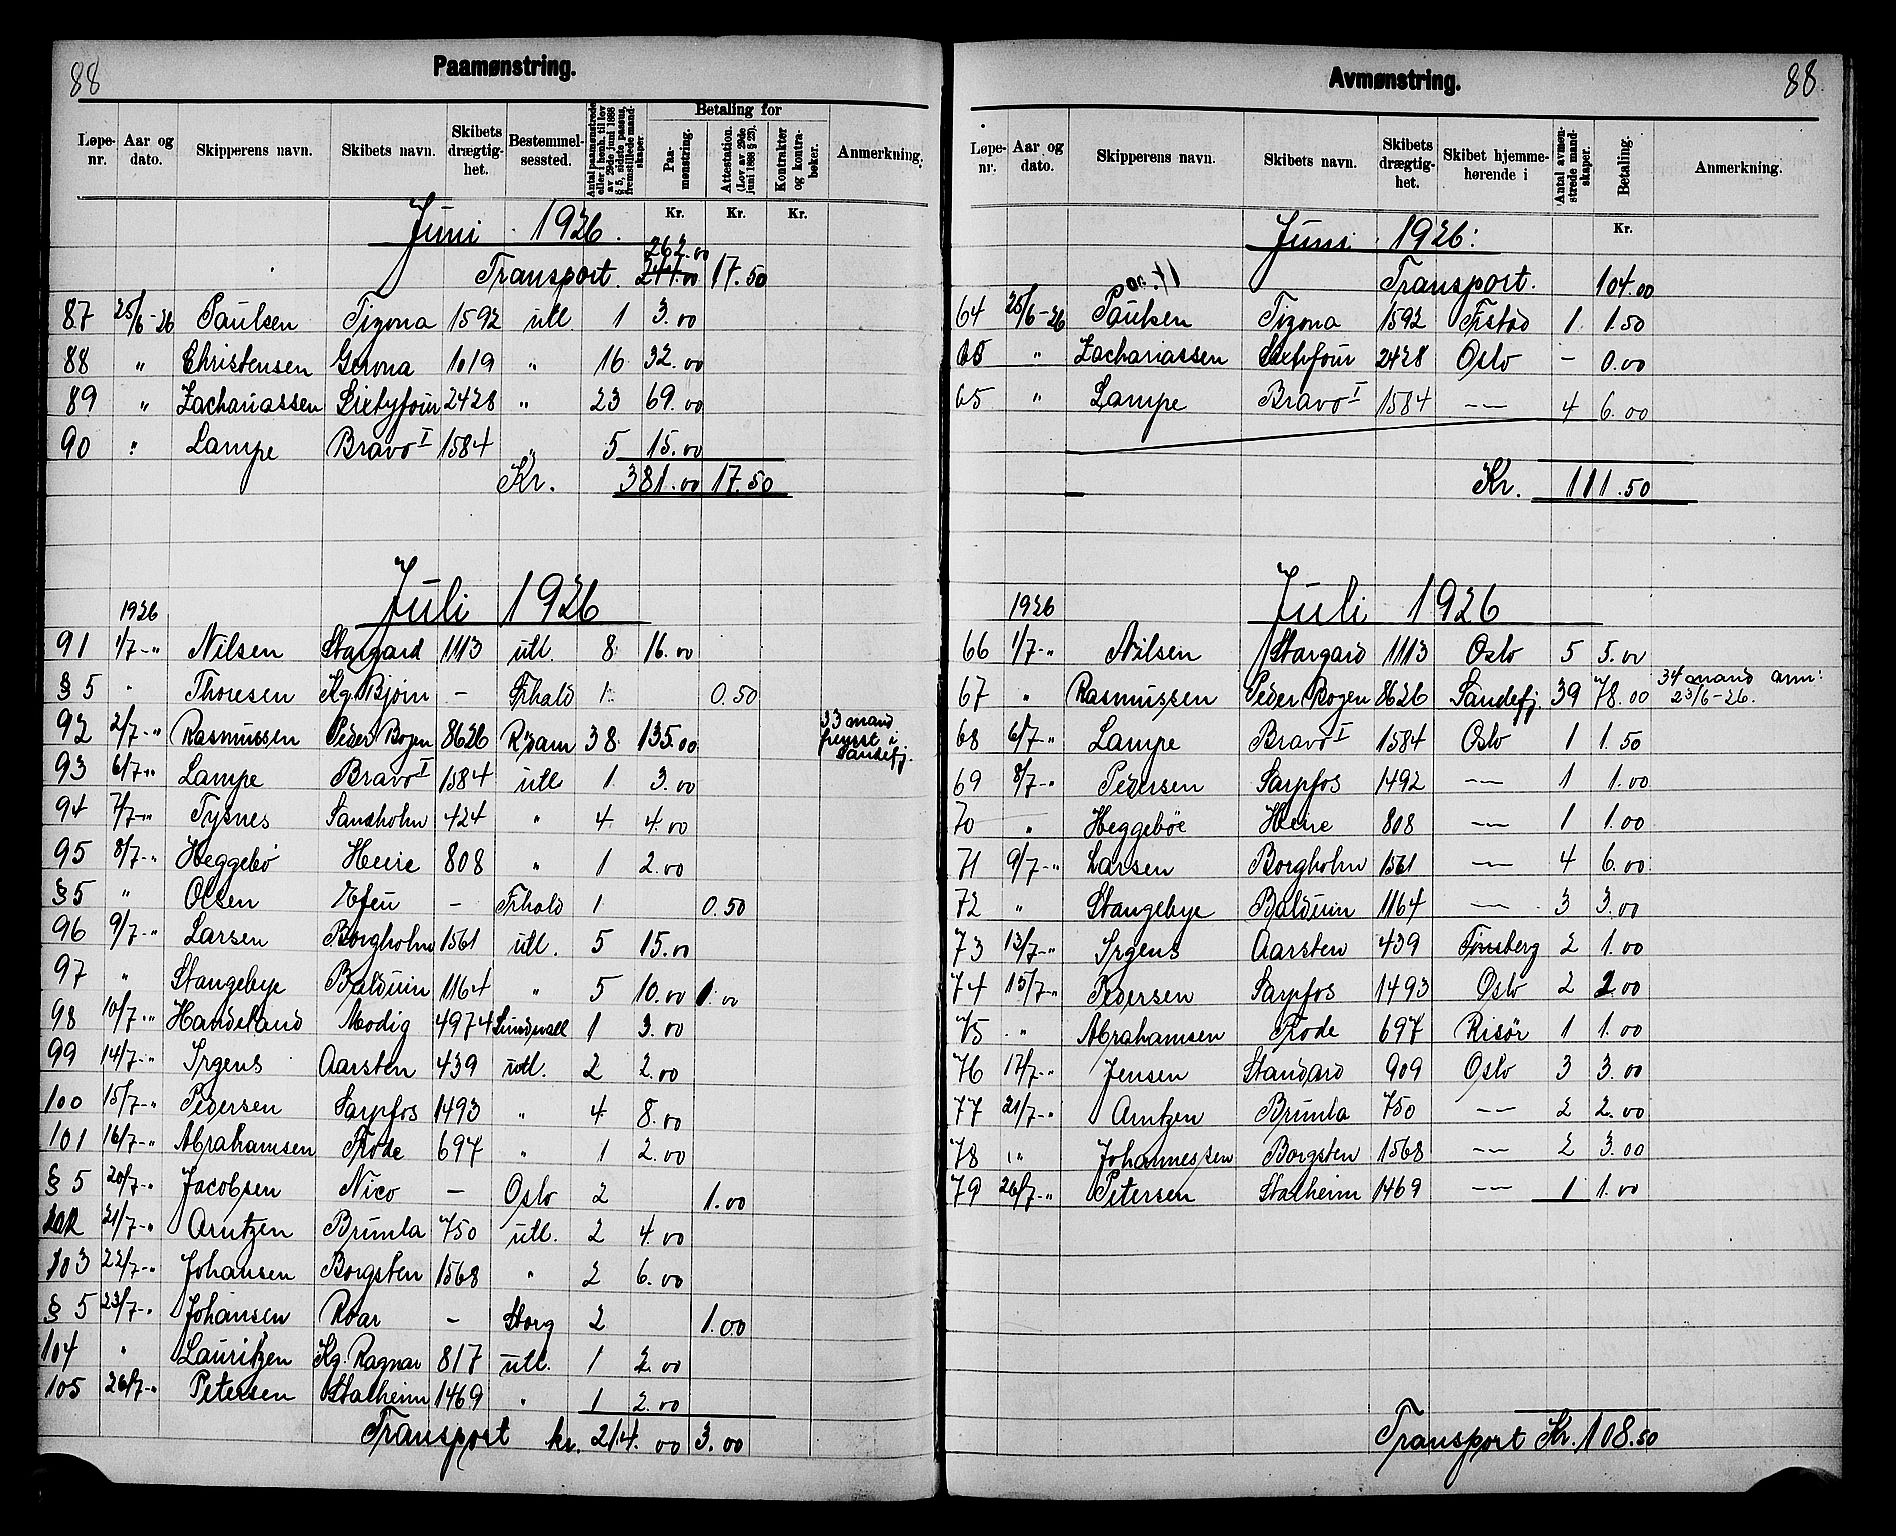 88
Paamønstring.
Løpe-nr. Aar og dato. Skipperens navn. Skibets navn. Skibets drægtig-het. Bestemmel-sessted. Antal paamønstrede eller i henh. til lov av 29de juni 1888 § 5, sidste passus, fremstillede mand-skaper. Betaling for Paa-mønstring. Attestation. (Lov av 29de juni 1888 § 23). Kontrakter og kontra-bøker. Anmerkning.
Kr. Kr. Kr.
Juni 1926.
262.00
Transport. 244.00 17.50
87 25/6-26 Paulsen Tizona 1592 utl 1 3.00
88 " Christensen Gerona 1019 " 16 32.00
89 " Zachariassen Sixtyfour 2428 " 23 69.00
90 " Lampe Bravo I 1584 " 5 15.00
Kr. 381.00 17.50
Juli 1926
1926
91 1/7-" Nilsen Stargard 1113 utl. 8 16.00
§ 5 " Thoresen Kg. Bjørn - Frhald 1 0.50
92 2/7-" Rasmussen Peder Bogen 8626 38 135.00 33 mand fremst i Sandefj.
93 6/7-" Lampe Bravo I 1584 utl 1 3.00
94 7/7-" Tysnes Sandholm 424 " 4 4.00
95 8/7-" Heggebø Heire 808 " 1 2.00
§ 5 " Olsen Efeu - Frhald 1 0.50
96 9/7-" Larsen Borgholm 1561 utl. 5 15.00
97 " Stangebye Balduin 1164 " 5 10.00 1.00
98 10/7-" Handeland Modig 4974 1 3.00
99 14/7-" Irgens Aarsten 439 utl. 2 2.00
100 15/7-" Pedersen Sarpfos 1493 " 4 8.00
101 16/7-" Abrahamsen Frode 697 " 1 2.00
§ 5 20/7-" Jacobsen Nico - Oslo 2 1.00
102 21/7-" Arntzen Brumla 750 utl. 2 4.00
103 22/7-" Johansen Borgsten 1568 " 2 6.00
§ 5 23/7-" Johansen Roar - Storg 2 1.00
104 " Lauritzen Kg. Ragnar 817 utl. 1 2.00
105 26/7-" Petersen Stalheim 1469 " 1 2.00
Transport kr. 214.00 3.00
88
Avmønstring.
Løpe-nr. Aar og dato. Skipperens navn. Skibets navn. Skibets drægtig-het. Skibet hjemme-hørende i Antal avmøn-strede mand-skaper. Betaling. Anmerkning.
Kr.
Juni 1926:
Transport. 104.00
64 25/6-26 Paulsen Tizona 1592 Frstad 1 1.50
65 " Zachariassen Sixtyfour 2428 Oslo - 0.00
65 " Lampe Bravo I 1584 -"- 4 6.00
Kr. 111.50
Juli 1926
1926
66 1/7-" Nilsen Stargard 1113 Oslo 5 5.00
67 " Rasmussen Peder Bogen 8626 Sandefj. 39 78.00 34 mand anm: 23/6-26.
68 6/7-" Lampe Bravo I 1584 Oslo 1 1.50
69 8/7-" Pedersen Sarpfos 1492 -"- 1 1.00
70 " Heggebøe Heire 808 -"- 1 1.00
71 9/7-" Larsen Borgholm 1561 -"- 4 6.00
72 " Stangebye Balduin 1164 -"- 3 3.00
73 13/7-" Irgens Aarsten 439 Tønsberg 2 1.00
74 15/7-" Pedersen Sarpfos 1493 Oslo 2 2.00
75 " Abrahamsen Frode 697 Risør 1 1.00
76 17/7-" Jensen Standard 909 Oslo 3 3.00
77 21/7-" Arntzen Brumla 750 -"- 2 2.00
78 " Johannessen Borgsten 1568 -"- 2 3.00
79 26/7-" Petersen Stalheim 1469 -"- 1 1.00
Transport Kr. 108.50